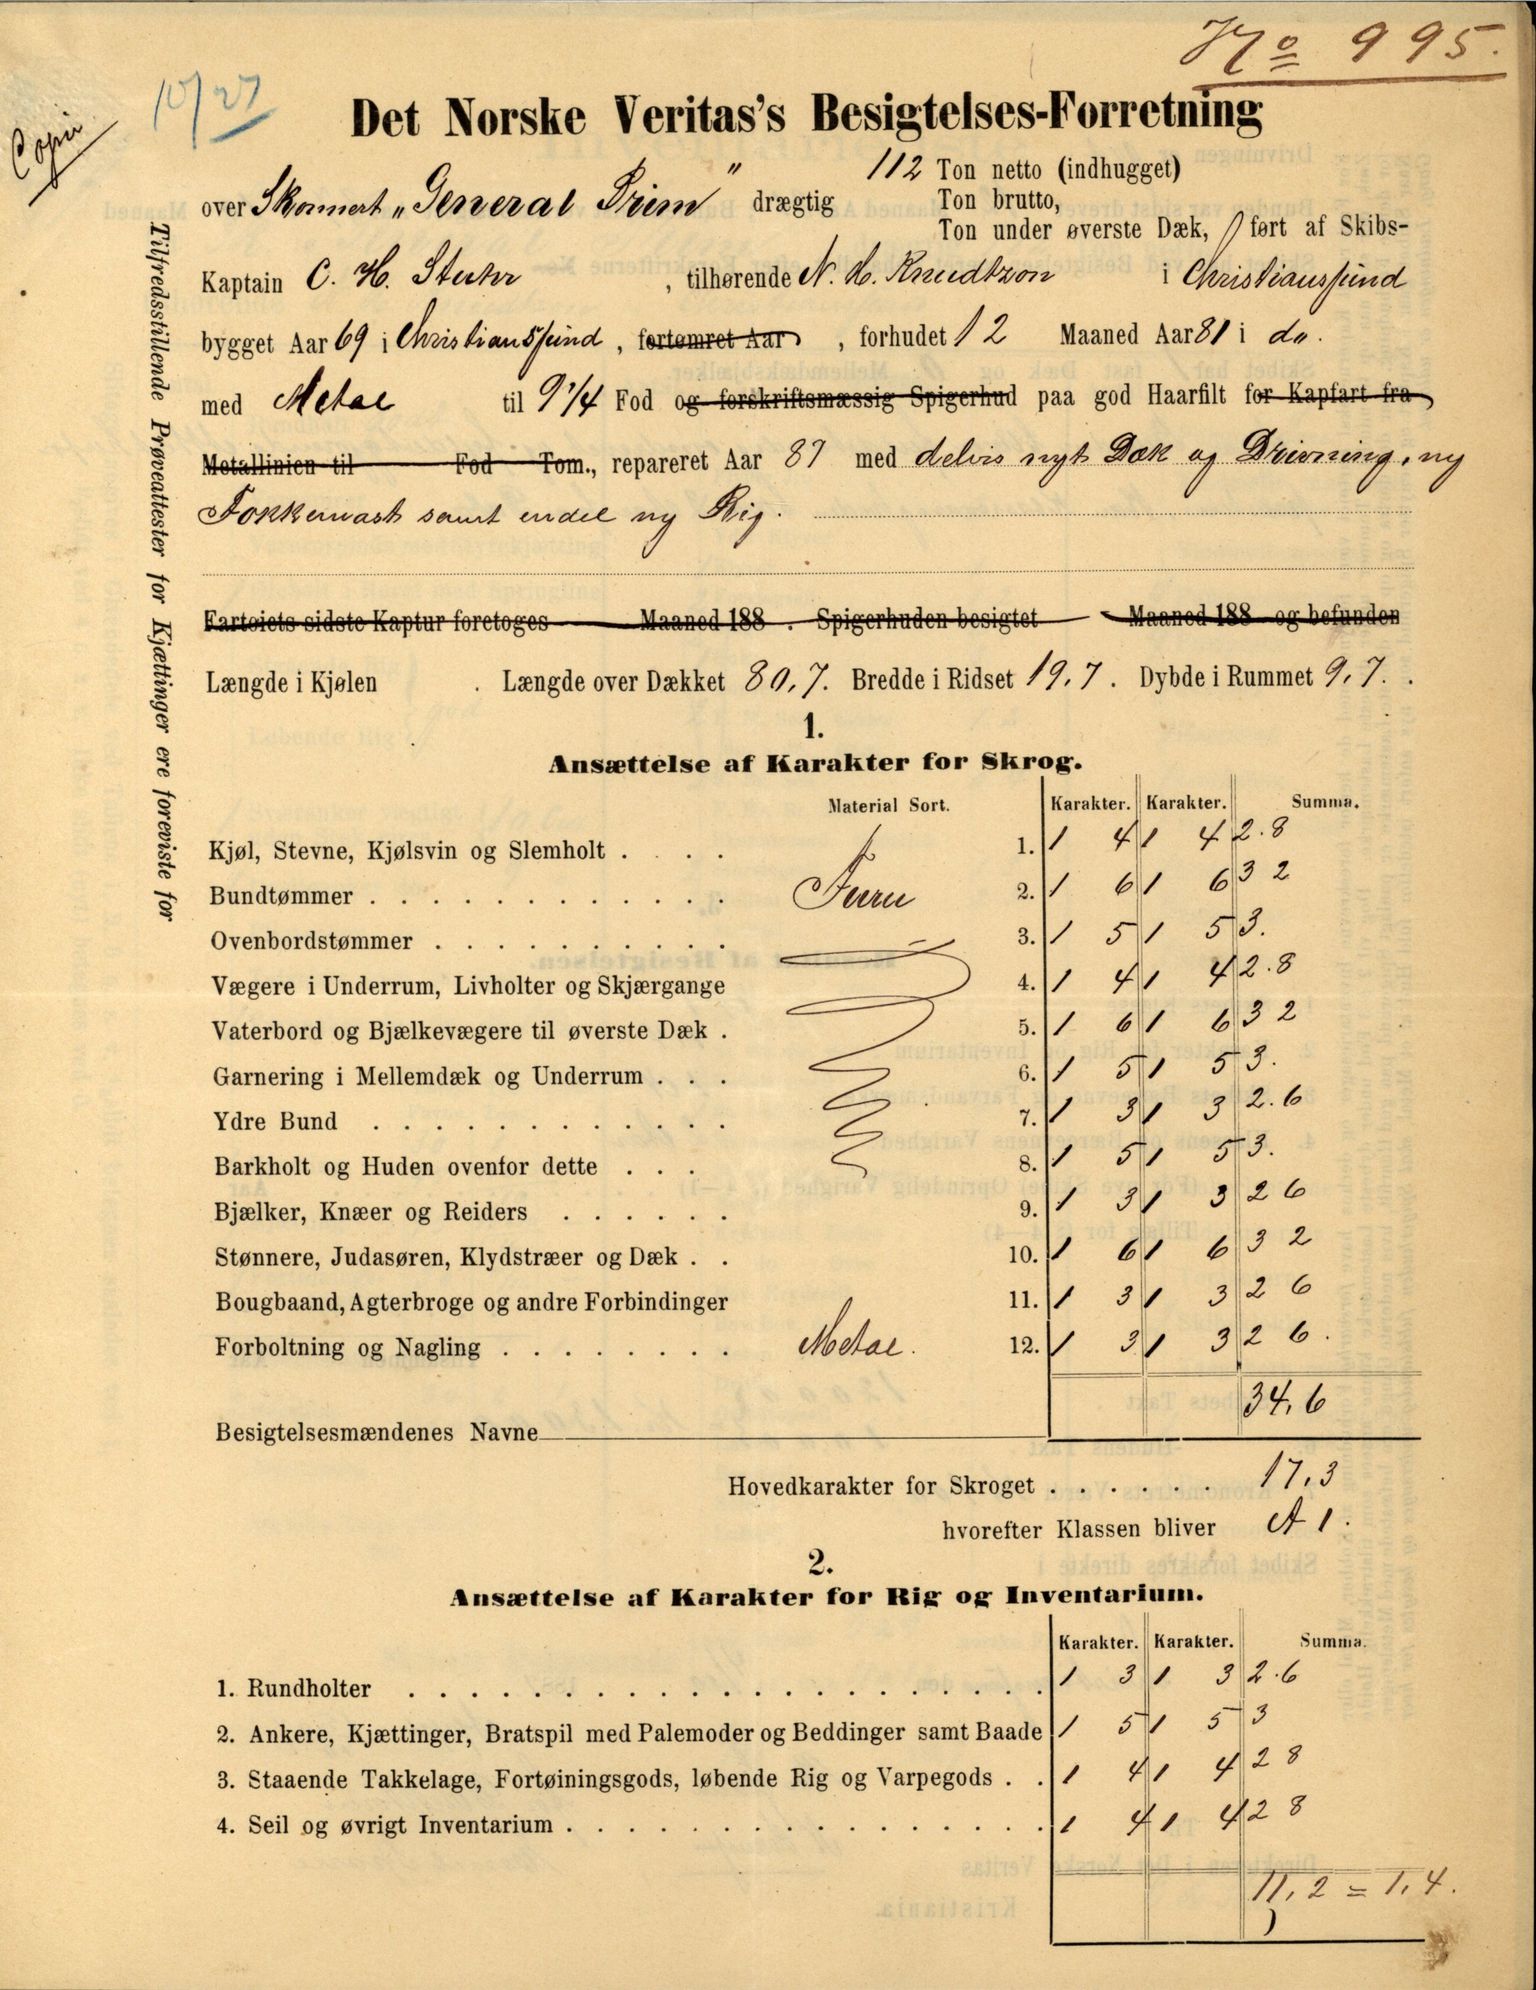 No 995.
10/27
Copie
Det Norske Veritas's Besigtelses-Forretning
over Skonnert „General Prim" drægtig 112 Ton netto (indhugget)
Ton brutto,
Ton under øverste Dæk, ført af Skibs-
Kaptain C. H. Stuhr, tilhørende N. H. Knudtzon i Christianssund
bygget Aar 69 i Christianssund, fortømret Aar, forhudet 12 Maaned Aar 81 i do.
med Metal til 9 1/4 Fod og forskriftsmæssig Spigerhud paa god Haarfilt for Kapfart fra
Metallinien til Fod Tom., repareret Aar 87 med delvis nyt Dæk og Drivning, ny
Fokkemast samt endel ny Rig.
Fartøiets sidste Kaptur foretoges Maaned 188 . Spigerhuden besigtet Maaned 188 og befunden
Længde i Kjølen . Længde over Dækket 80,7. Bredde i Ridset 19,7. Dybde i Rummet 9,7.
Tilfredsstillende Prøveattester for Kjættinger ere foreviste for
1.
Ansættelse af Karakter for Skrog.
Material Sort. Karakter. Karakter. Summa.
Kjøl, Stevne, Kjølsvin og Slemholt . . . . 1. 1 4 1 4 2.8
Bundtømmer . . . . . . . . . . . . Furu 2. 1 6 1 6 3 2
Ovenbordstømmer . . . . . . . . . . 3. 1 5 1 5 3.
Vægere i Underrum, Livholter og Skjærgange 4. 1 4 1 4 2.8
Vaterbord og Bjælkevægere til øverste Dæk . 5. 1 6 1 6 3 2
Garnering i Mellemdæk og Underrum . . . 6. 1 5 1 5 3.
Ydre Bund . . . . . . . . . . . . 7. 1 3 1 3 2.6
Barkholt og Huden ovenfor dette . . . 8. 1 5 1 5 3.
Bjælker, Knæer og Reiders . . . . . . 9. 1 3 1 3 2 6
Stønnere, Judasøren, Klydstræer og Dæk . . 10. 1 6 1 6 3 2
Bougbaand, Agterbroge og andre Forbindinger 11. 1 3 1 3 2 6
Forboltning og Nagling . . . . . . . . Metal. 12. 1 3 1 3 2 6.
34,6
Besigtelsesmændenes Navne
Hovedkarakter for Skroget . . . . . . 17,3
hvorefter Klassen bliver A 1.
2.
Ansættelse af Karakter for Rig og Inventarium.
Karakter. Karakter. Summa.
1. Rundholter . . . . . . . . . . . . . . . . . . . . . 1 3 1 3 2.6
2. Ankere, Kjættinger, Bratspil med Palemoder og Beddinger samt Baade 1 5 1 5 3
3. Staaende Takkelage, Fortøiningsgods, løbende Rig og Varpegods . . 1 4 1 4 2 8
4. Seil og øvrigt Inventarium . . . . . . . . . . . . . . . . 1 4 1 4 2 8
11,2 = 1,4.